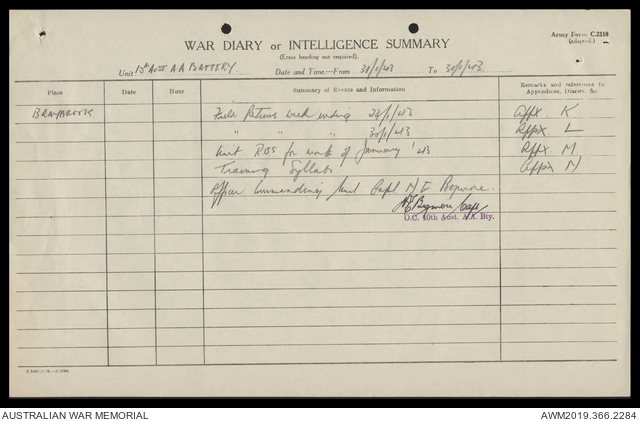 Army Form C.2118
(adapted.)
WAR DIARY or INTELLIGENCE SUMMARY
(Erase heading not required).
Unit Aust AA BATTERY Date and Time.—From 30/1/43 To 30/1/43
Place Date Hour Summary of Events and Information Remarks and references to Appendices, Diaries, &c
BRAYBROOK Field Returns week ending 23/1/43 Appx. K
" " " 30/1/43 Appx. L
Unit R.O's for month of January '43 Appx. M
Training Syllabs Appx N
Officer Commanding Unit Capt
Capt
O.C. 40th Aust. A.A. Bty.
AUSTRALIAN WAR MEMORIAL
AWM2019.366.2284